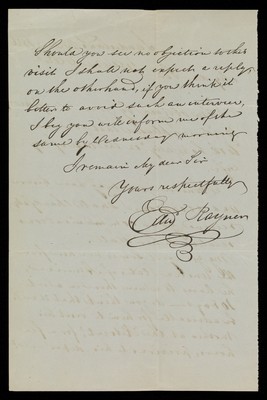 Should you see no objection to her
visit I shall not expect a reply,
on the otherhand, if you think it
better to avoid such an interview,
I beg you will inform me of the
same by Wednesday morning
I remain My dear Sir
Yours respectfully
Edwd Raynor